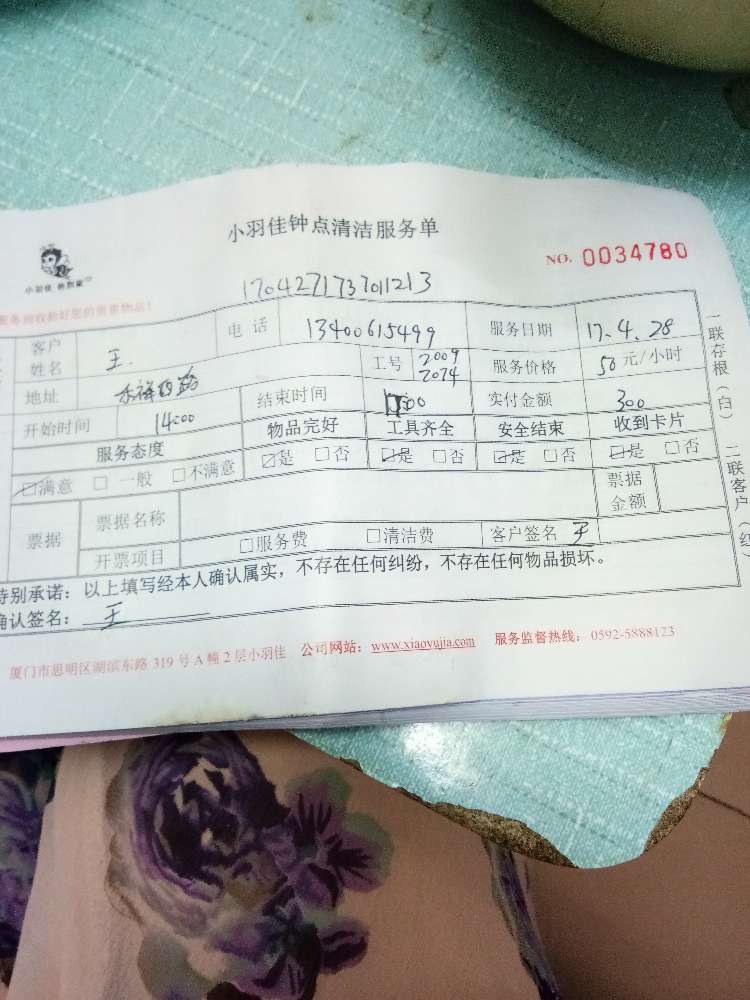 小羽佳钟点清洁服务单
小羽佳 快到家
NO. 0034780
170427173701213
服务前收拾好您的贵重物品!
客户姓名 王. 电话 13400615499 服务日期 17.4.28
地址 工号 2009 2074 服务价格 50元/小时
开始时间 14:00 结束时间 实付金额 300
服务态度 物品完好 工具齐全 安全结束 收到卡片
☑满意 □一般 □不满意 ☑是 □否 ☑是 □否 ☑是 □否 ☑是 □否
票据 票据名称 票据金额
开票项目 □服务费 □清洁费 客户签名 王
特别承诺：以上填写经本人确认属实，不存在任何纠纷，不存在任何物品损坏。
确认签名：王
厦门市思明区湖滨东路 319 号 A 幢 2 层小羽佳 公司网站：www.xiaoyujia.com 服务监督热线：0592-5888123
一联存根（白） 二联客户（红）